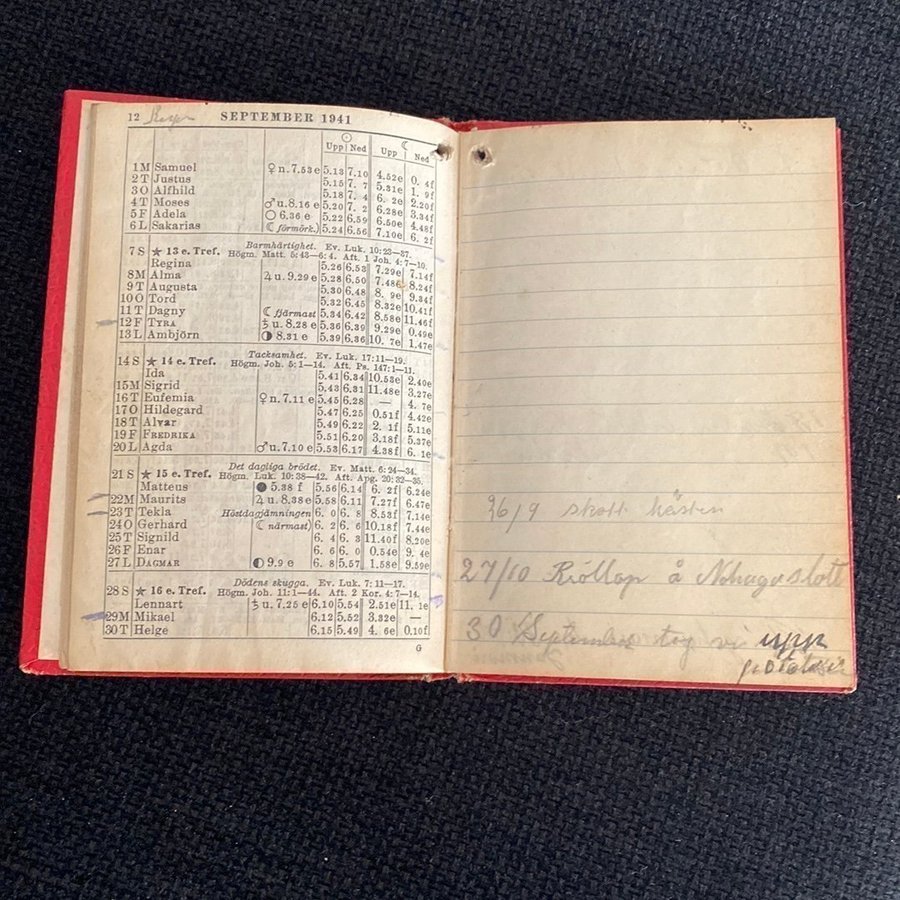 12 SEPTEMBER 1941
☉ ☾
Upp Ned Upp Ned
1 M Samuel ♀ n. 7.53 e 5.13 7.10 4.52e 0. 4f
2 T Justus 5.15 7. 7 5.31e 1. 9f
3 O Alfhild 5.18 7. 4 6. 2e 2.20f
4 T Moses ♂ u. 8.16 e 5.20 7. 2 6.28e 3.34f
5 F Adela ○ 6.36 e 5.22 6.59 6.50e 4.48f
6 L Sakarias ☾ förmörk.) 5.24 6.56 7.10e 6. 2f
Barmhärtighet. Ev. Luk. 10: 23—37.
7 S ★ 13 e. Tref. Högm. Matt. 5: 43—6: 4. Aft. 1 Joh. 4: 7—10.
Regina 5.26 6.53 7.29e 7.14f
8 M Alma ♃ u. 9.29 e 5.28 6.50 7.48e 8.24f
9 T Augusta 5.30 6.48 8. 9e 9.34f
10 O Tord 5.32 6.45 8.32e 10.41f
11 T Dagny ☾ fjärmast 5.34 6.42 8.58e 11.46f
12 F TYRA ♄ u. 8.28 e 5.36 6.39 9.29e 0.49e
13 L Ambjörn ◑ 8.31 e 5.39 6.36 10. 7e 1.47e
Tacksamhet. Ev. Luk. 17: 11—19.
14 S ★ 14 e. Tref. Högm. Joh. 5: 1—14. Aft. Ps. 147: 1—11.
Ida 5.41 6.34 10.53e 2.40e
15 M Sigrid 5.43 6.31 11.48e 3.27e
16 T Eufemia ♀ n. 7.11 e 5.45 6.28 — 4. 7e
17 O Hildegard 5.47 6.25 0.51f 4.42e
18 T Alvar 5.49 6.22 2. 1f 5.11e
19 F FREDRIKA 5.51 6.20 3.18f 5.37e
20 L Agda ♂ u. 7.10 e 5.53 6.17 4.38f 6. 1e
Det dagliga brödet. Ev. Matt. 6: 24—34.
21 S ★ 15 e. Tref. Högm. Luk. 10: 38—42. Aft. Apg. 20: 32—35.
Matteus ● 5.38 f 5.56 6.14 6. 2f 6.24e
22 M Maurits ♃ u. 8.38 e 5.58 6.11 7.27f 6.47e
23 T Tekla Höstdagjämningen 6. 0 6. 8 8.53f 7.14e
24 O Gerhard ☾ närmast) 6. 2 6. 6 10.18f 7.44e
25 T Signild 6. 4 6. 3 11.40f 8.20e
26 F Enar 6. 6 6. 0 0.54e 9. 4e
27 L DAGMAR ◐ 9.9 e 6. 8 5.57 1.58e 9.59e
Dödens skugga. Ev. Luk. 7: 11—17.
28 S ★ 16 e. Tref. Högm. Joh. 11: 1—44. Aft. 2 Kor. 4: 7—14.
Lennart ♄ u. 7.25 e 6.10 5.54 2.51e 11. 1e
29 M Mikael 6.12 5.52 3.32e —
30 T Helge 6.15 5.49 4. 6e 0.10f
G
26/9 skott hästen
27/10 å slott
30 September tog vi upp
potatisen